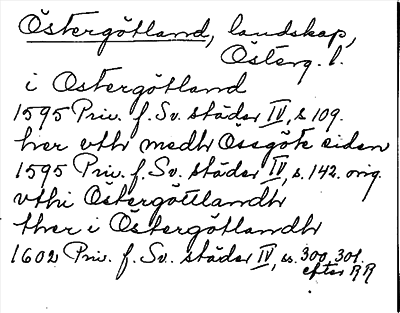 Östergötland, landskap,
Österg. l.
i Östergötland
1595 Priv. f. Sv. städer IV, s 109.
her vthi medh Össgöte siden
1595 Priv. f. Sv. städer IV, s. 142. orig.
vthi Östergöttlandh
ther i Östergötlandh
1602 Priv. f. Sv. städer IV, ss. 300, 301.
efter RR